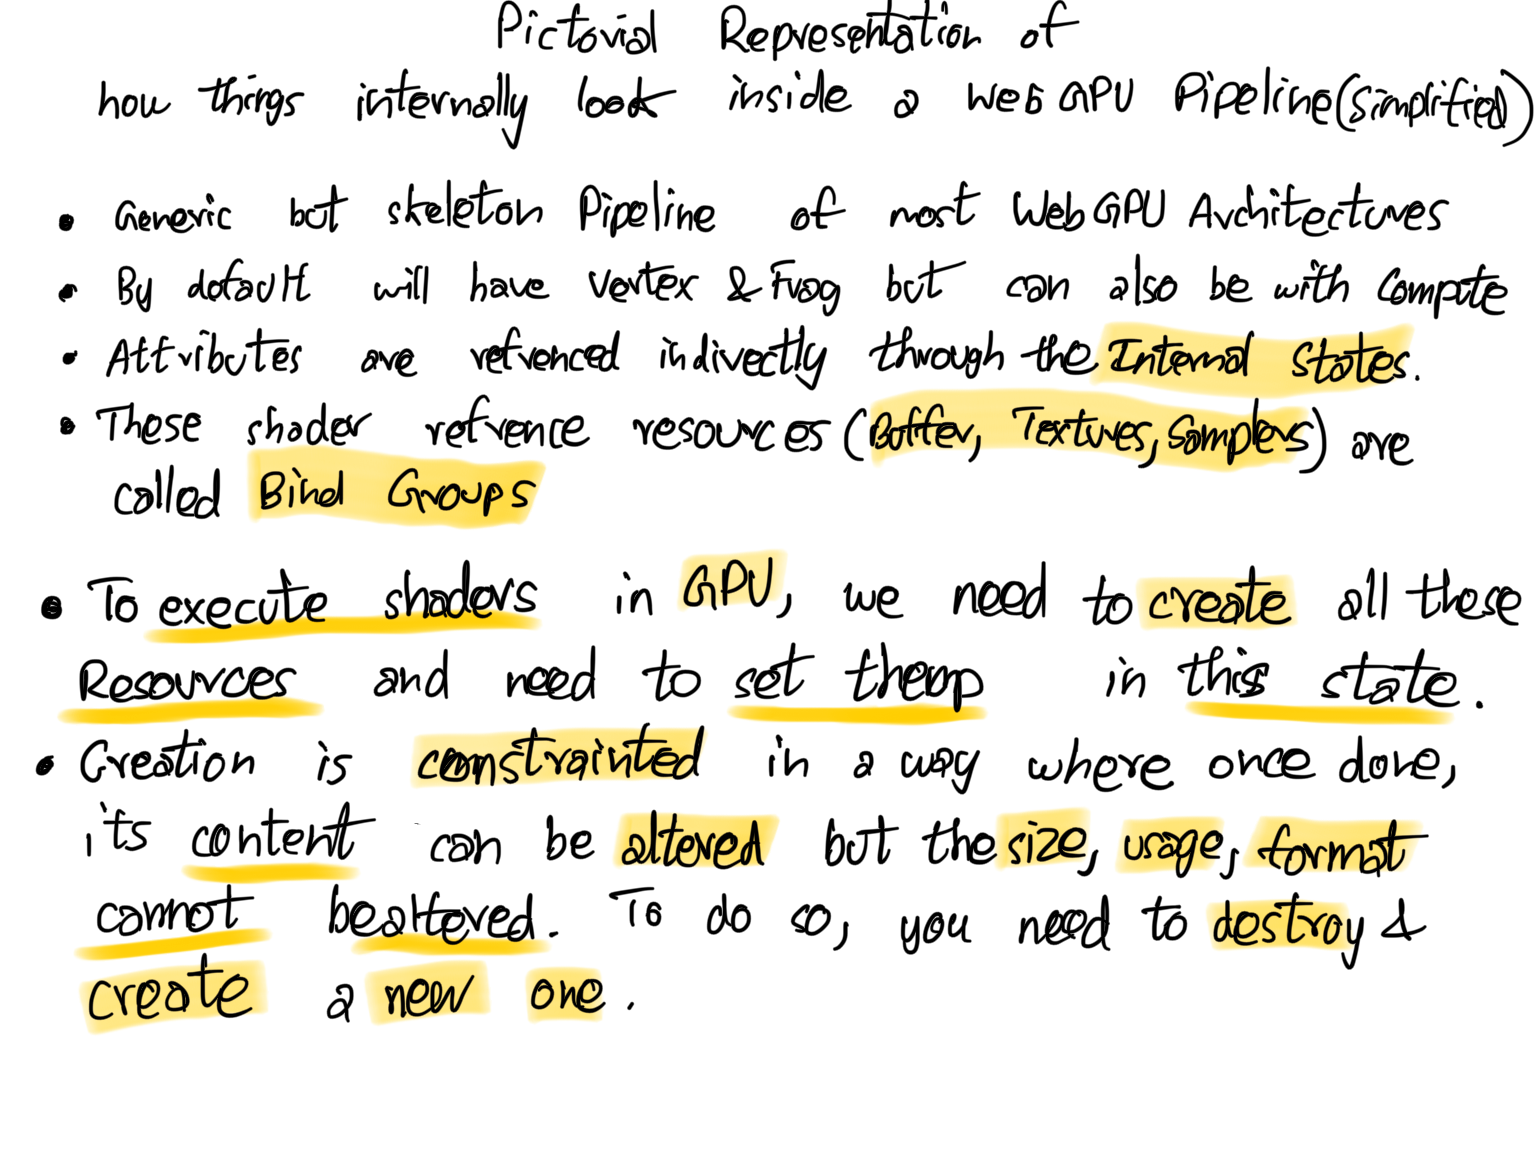 Pictorial Representation of
how things internally look inside a WebGPU Pipeline (simplified)
• Generic but skeleton Pipeline of most WebGPU Architectures
• By default will have Vertex & Frag but can also be with Compute
• Attributes are refrenced indirectly through the Internal States.
• These shader refrence resources (Buffer, Textures, Samplers) are
called Bind Groups
• To execute shaders in GPU, we need to create all these
Resources and need to set them up in this state.
• Creation is constrainted in a way where once done,
its content can be altered but the size, usage, format
cannot be altered. To do so, you need to destroy &
create a new one.